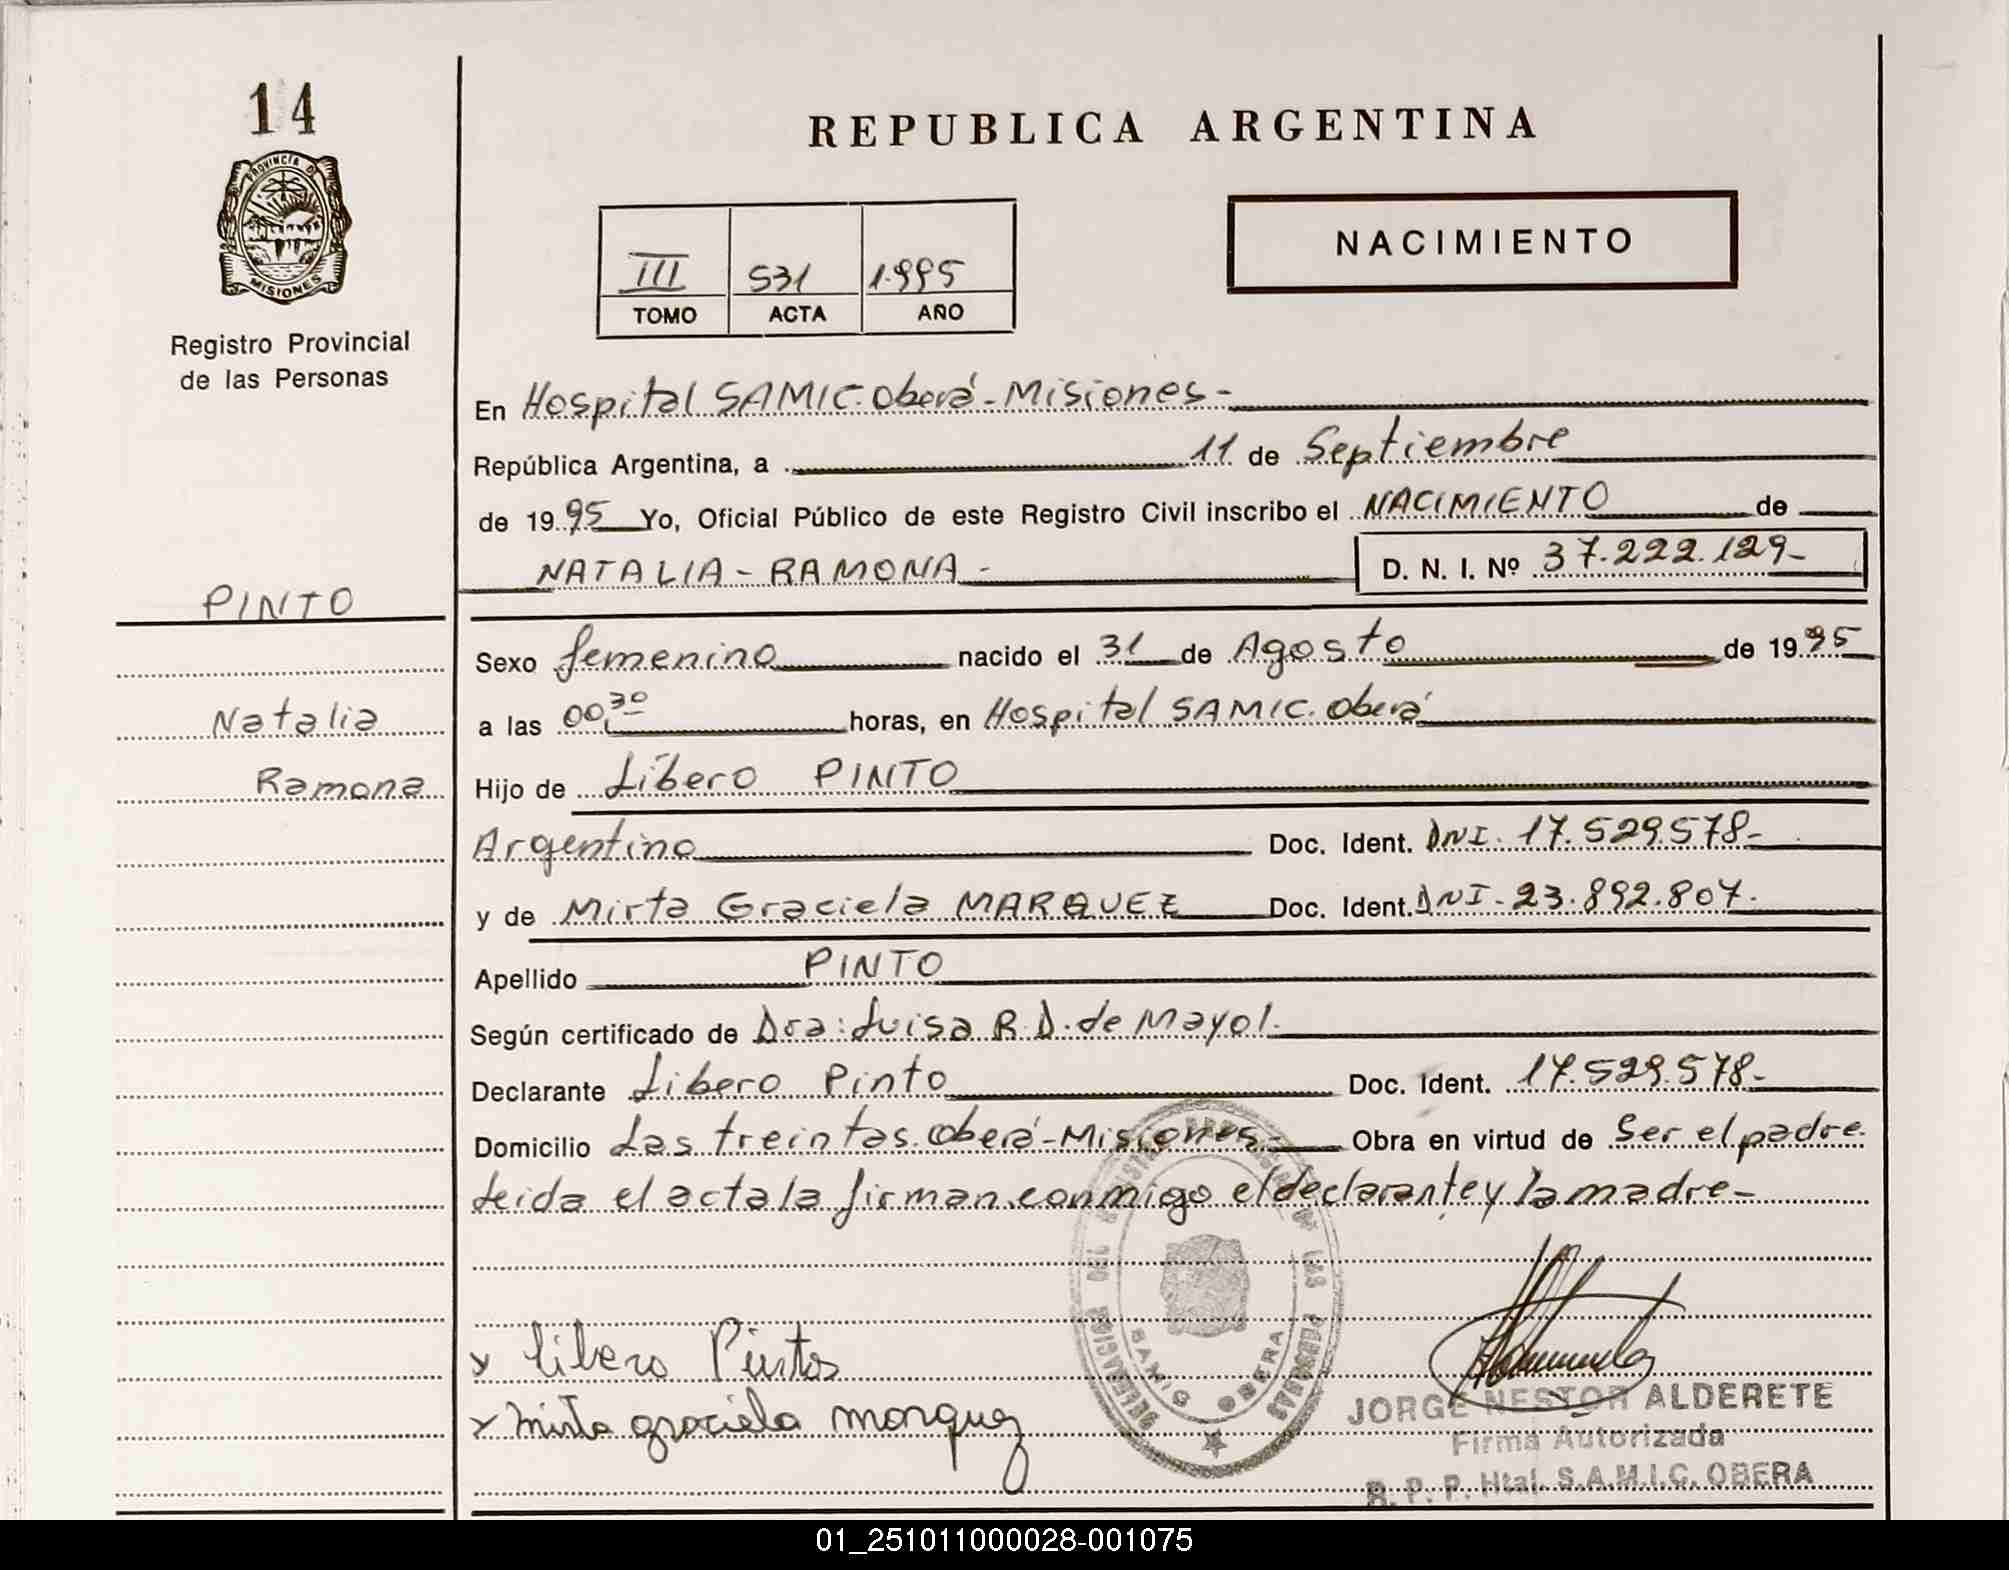 14
PROVINCIA DE
MISIONES
Registro Provincial
de las Personas
PINTO
Natalia
Ramona
REPUBLICA ARGENTINA
III 531 1.995
TOMO ACTA AÑO
NACIMIENTO
En Hospital SAMIC. Oberá - Misiones -
República Argentina, a 11 de Septiembre
de 19 95 Yo, Oficial Público de este Registro Civil inscribo el NACIMIENTO de
NATALIA - RAMONA - D. N. I. Nº 37.222.129-
Sexo femenino nacido el 31 de Agosto de 19 95
a las 00,30 horas, en Hospital SAMIC. Oberá
Hijo de Líbero PINTO
Argentino Doc. Ident. DNI. 17.529.578-
y de Mirta Graciela MARQUEZ Doc. Ident. DNI - 23.892.807.
Apellido PINTO
Según certificado de Dra: Luisa R. D. de Mayol.
Declarante Libero Pinto Doc. Ident. 17.529.578-
Domicilio Las treintas. Oberá - Misiones - Obra en virtud de Ser el padre
Leida el acta la firman conmigo el declarante y la madre -
x Libero Pintos
x Mirta graciela marquez
DELEGACION DEL REGISTRO PROVINCIAL DE LAS PERSONAS
SAMIC OBERA
JORGE NESTOR ALDERETE
Firma Autorizada
R. P. P. Htal. S.A.M.I.C. OBERA
01_251011000028-001075